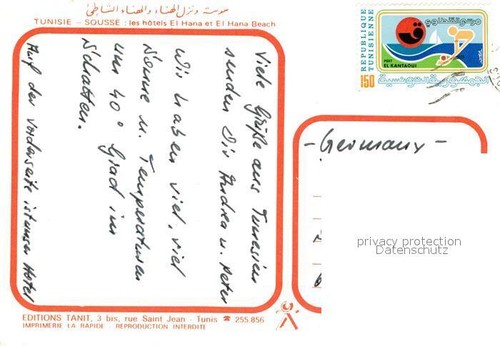 سوسة ونزل الهناء والهناء الشاطئ
TUNISIE - SOUSSE : les hôtels El Hana et El Hana Beach
Viele Grüße aus Tunesien
senden Dir Andrea u. Peter
Wir haben viel, viel
Sonne u. Temperaturen
um 40° Grad im
Schatten.
Auf der Vorderseite ist unser Hotel
EDITIONS TANIT, 3 bis, rue Saint Jean - Tunis ☎ 255.856
IMPRIMERIE LA RAPIDE - REPRODUCTION INTERDITE
REPUBLIQUE
TUNISIENNE
150
PORT
EL KANTAOUI
الجمهورية التونسية
- Germany -
privacy protection
Datenschutz